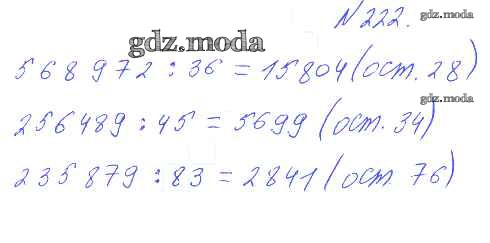 N 222. gdz.moda
gdz.moda
568972 : 36 = 15804 (ост. 28)
gdz.moda
256489 : 45 = 5699 (ост. 34)
235879 : 83 = 2841 (ост. 76)